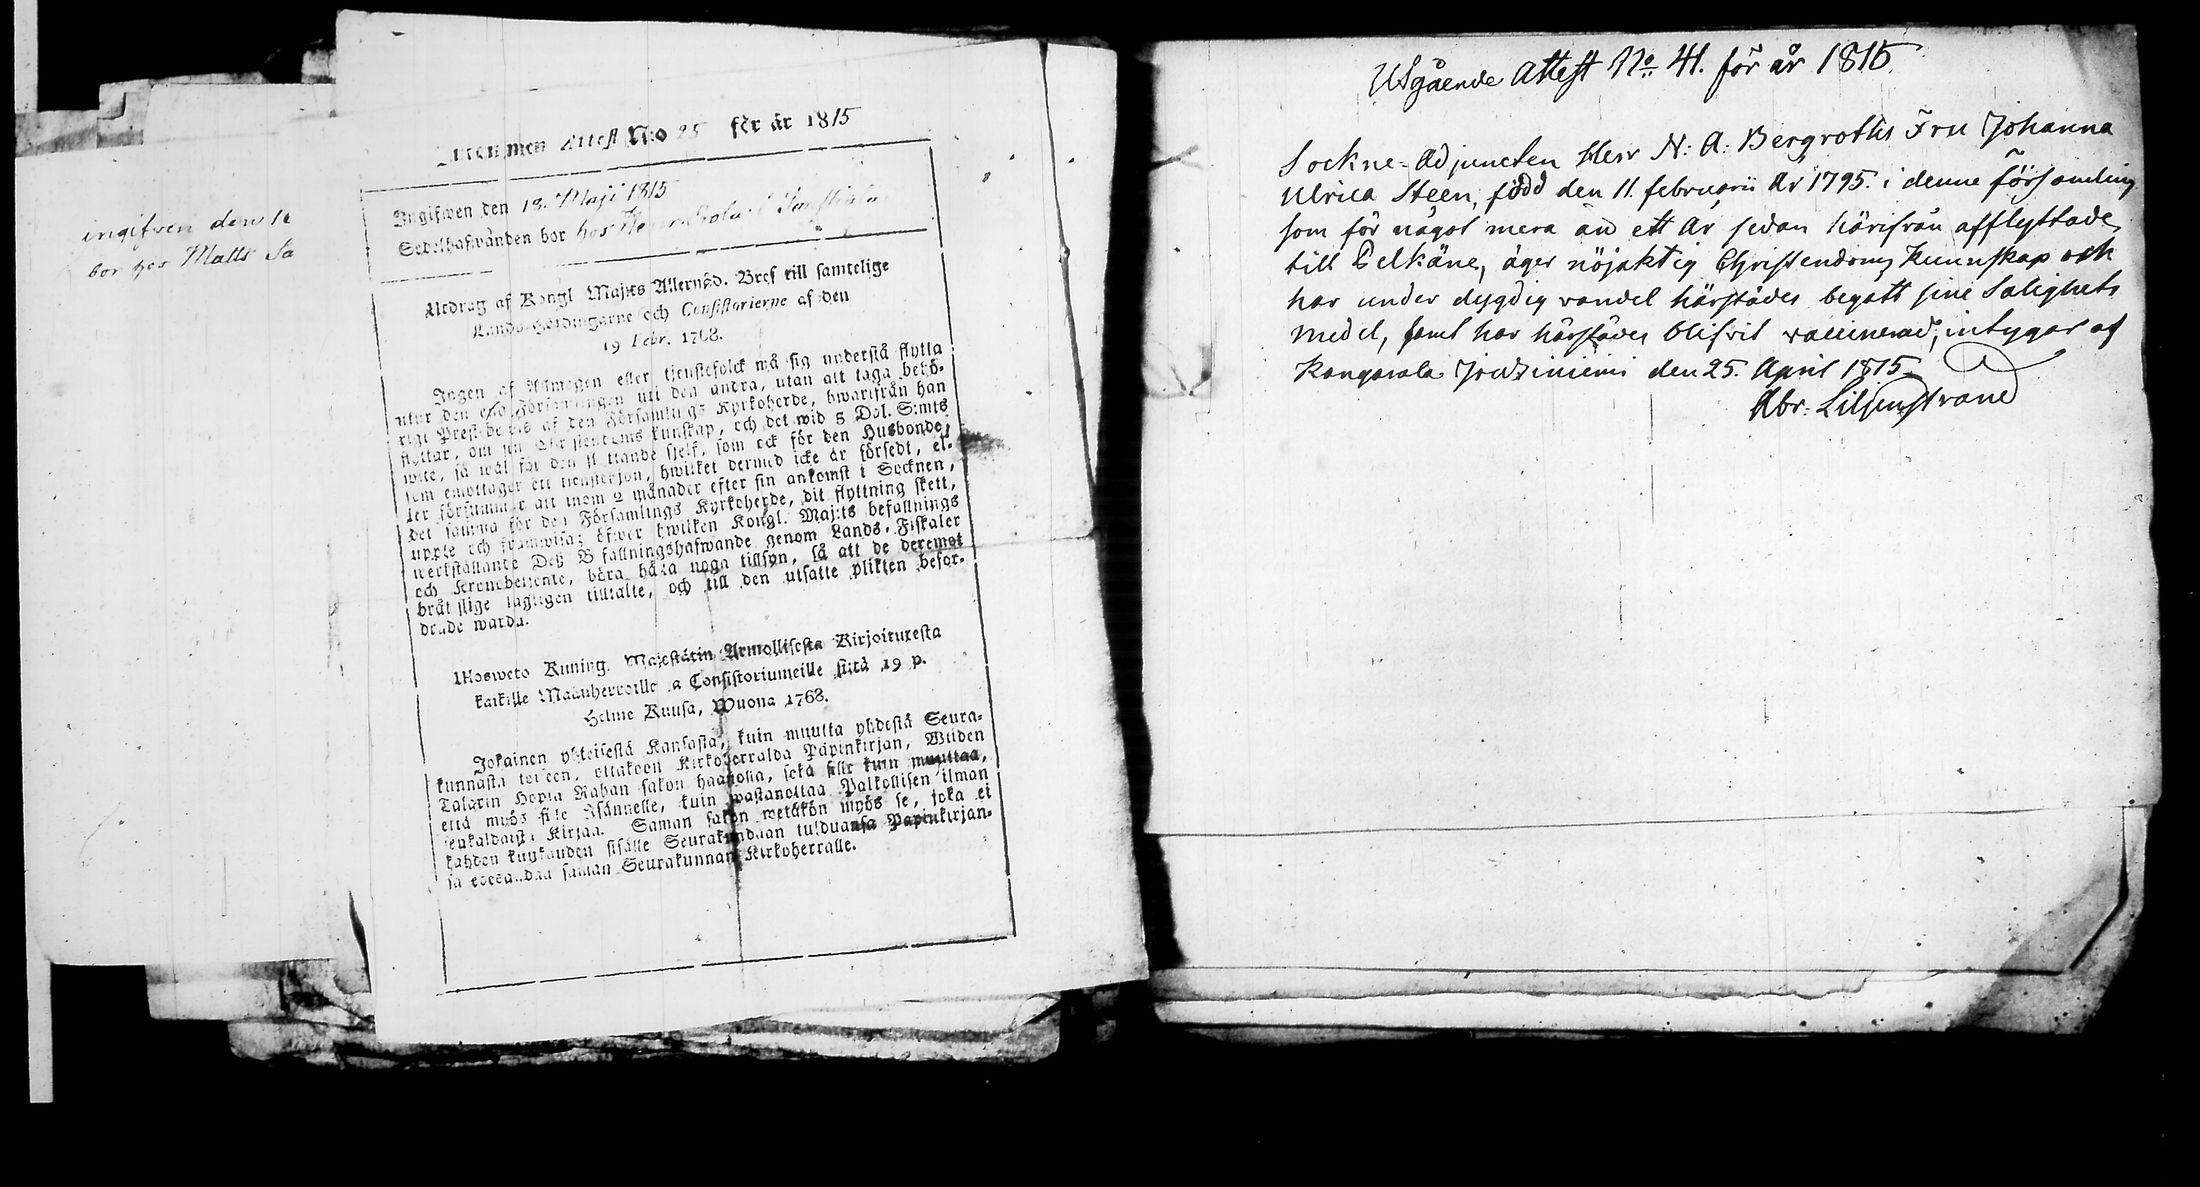 ingifven den 1
bor hos Matts Sa
men Attest N:o 25 för år 1815
Angifwen den 18. Maji 1815
Sedelhafwanden bor hos
Utdrag af Kongl Maj:ts Allernåd. Bref till samtelige
Lands-Höfdingarne och Consistorierne af den
19 Febr. 1768.
Ingen af Allmogen eller tjenstefolck må sig understå flytta
utur den ena Församlingen uti den andra, utan att taga behö-
rigt Prestebewis af den Församlings Kyrkoherde, hwarifrån han
flyttar, om sin Christendoms kunskap, och det wid 5 Dal. S:mts
wite, så wäl för den flyttande sjelf, som ock för den Husbonde,
som emottager ett tienstehjon, hwilket dermed icke är försedt, el-
ler försummar att inom 2 månader efter sin ankomst i Socknen,
det samma för den Församlings Kyrkoherde, dit flyttning skett,
uppte och framwisa; öfwer hwilken Kongl. Maj:ts befallnings
werkställande Deß Befallningshafwande genom Lands-Fiskaler
och Kronobetjente, böra hafwa noga tillsyn, så att de deremot
brått slige lagligen tilltalte, och till den utsatte plikten befor-
drade warda.
Ulosweto Kuning. Majestätin Armollisesta Kirjoituxesta
kaikille Maanherroille ja Consistoriumeille siitä 19 p.
Helme Kuusa, Wuona 1768.
Jokainen yhteisestä Kansasta, kuin muutta yhdestä Seura-
kunnasta toiseen, ottakoon Kirkoherralda Papinkirjan, Wiiden
Talarin Hopia Rahan sakon haastolla, sekä sille kuin muuttaa,
että myös sille Isännelle, kuin wastanottaa Palkollisen ilman
senkaldaista Kirjaa. Saman sakon wetäkön myös se, joka ei
kahden kuukauden sisälle Seurakundaan tulduansa Papinkirjan-
sa edesanna saman Seurakunnan Kirkoherralle.
Utgående Attest No 41. för år 1815.
Sockne-Adjuncten Herr N: A: Bergroths Fru Johanna
Ulrica Steen, född den 11. februarii År 1795. i denne församling
som för något mera än ett År sedan härifrån afflyttade
till Pelkäne, äger nöjaktig Christendoms kunnskap och
har under dygdig vandel härstädes begått sine Salighets
medel, samt har härstädes blifvit vaccinerad, intygar af
Kangasala Jouzsiniemi den 25. April 1815.
Abr: Liljenstrand